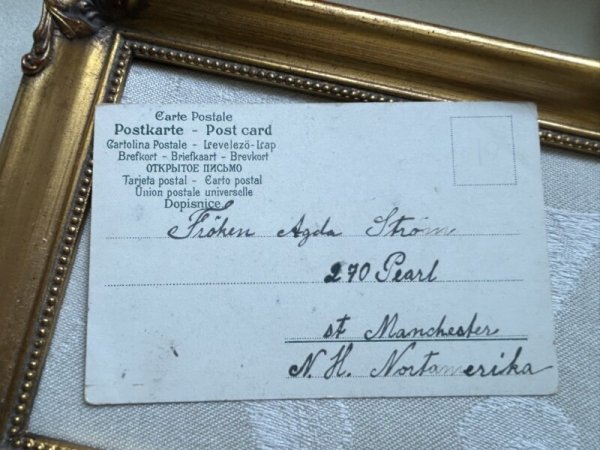 Carte Postale
Postkarte - Post card
Cartolina Postale - Levelező-Lap
Brefkort - Briefkaart - Brevkort
ОТКРЫТОЕ ПИСЬМО
Tarjeta postal - Carto postal
Union postale universelle
Dopisnice
Fröken Agda Ström
270 Pearl
st Manchester
N. H. Nortamerika